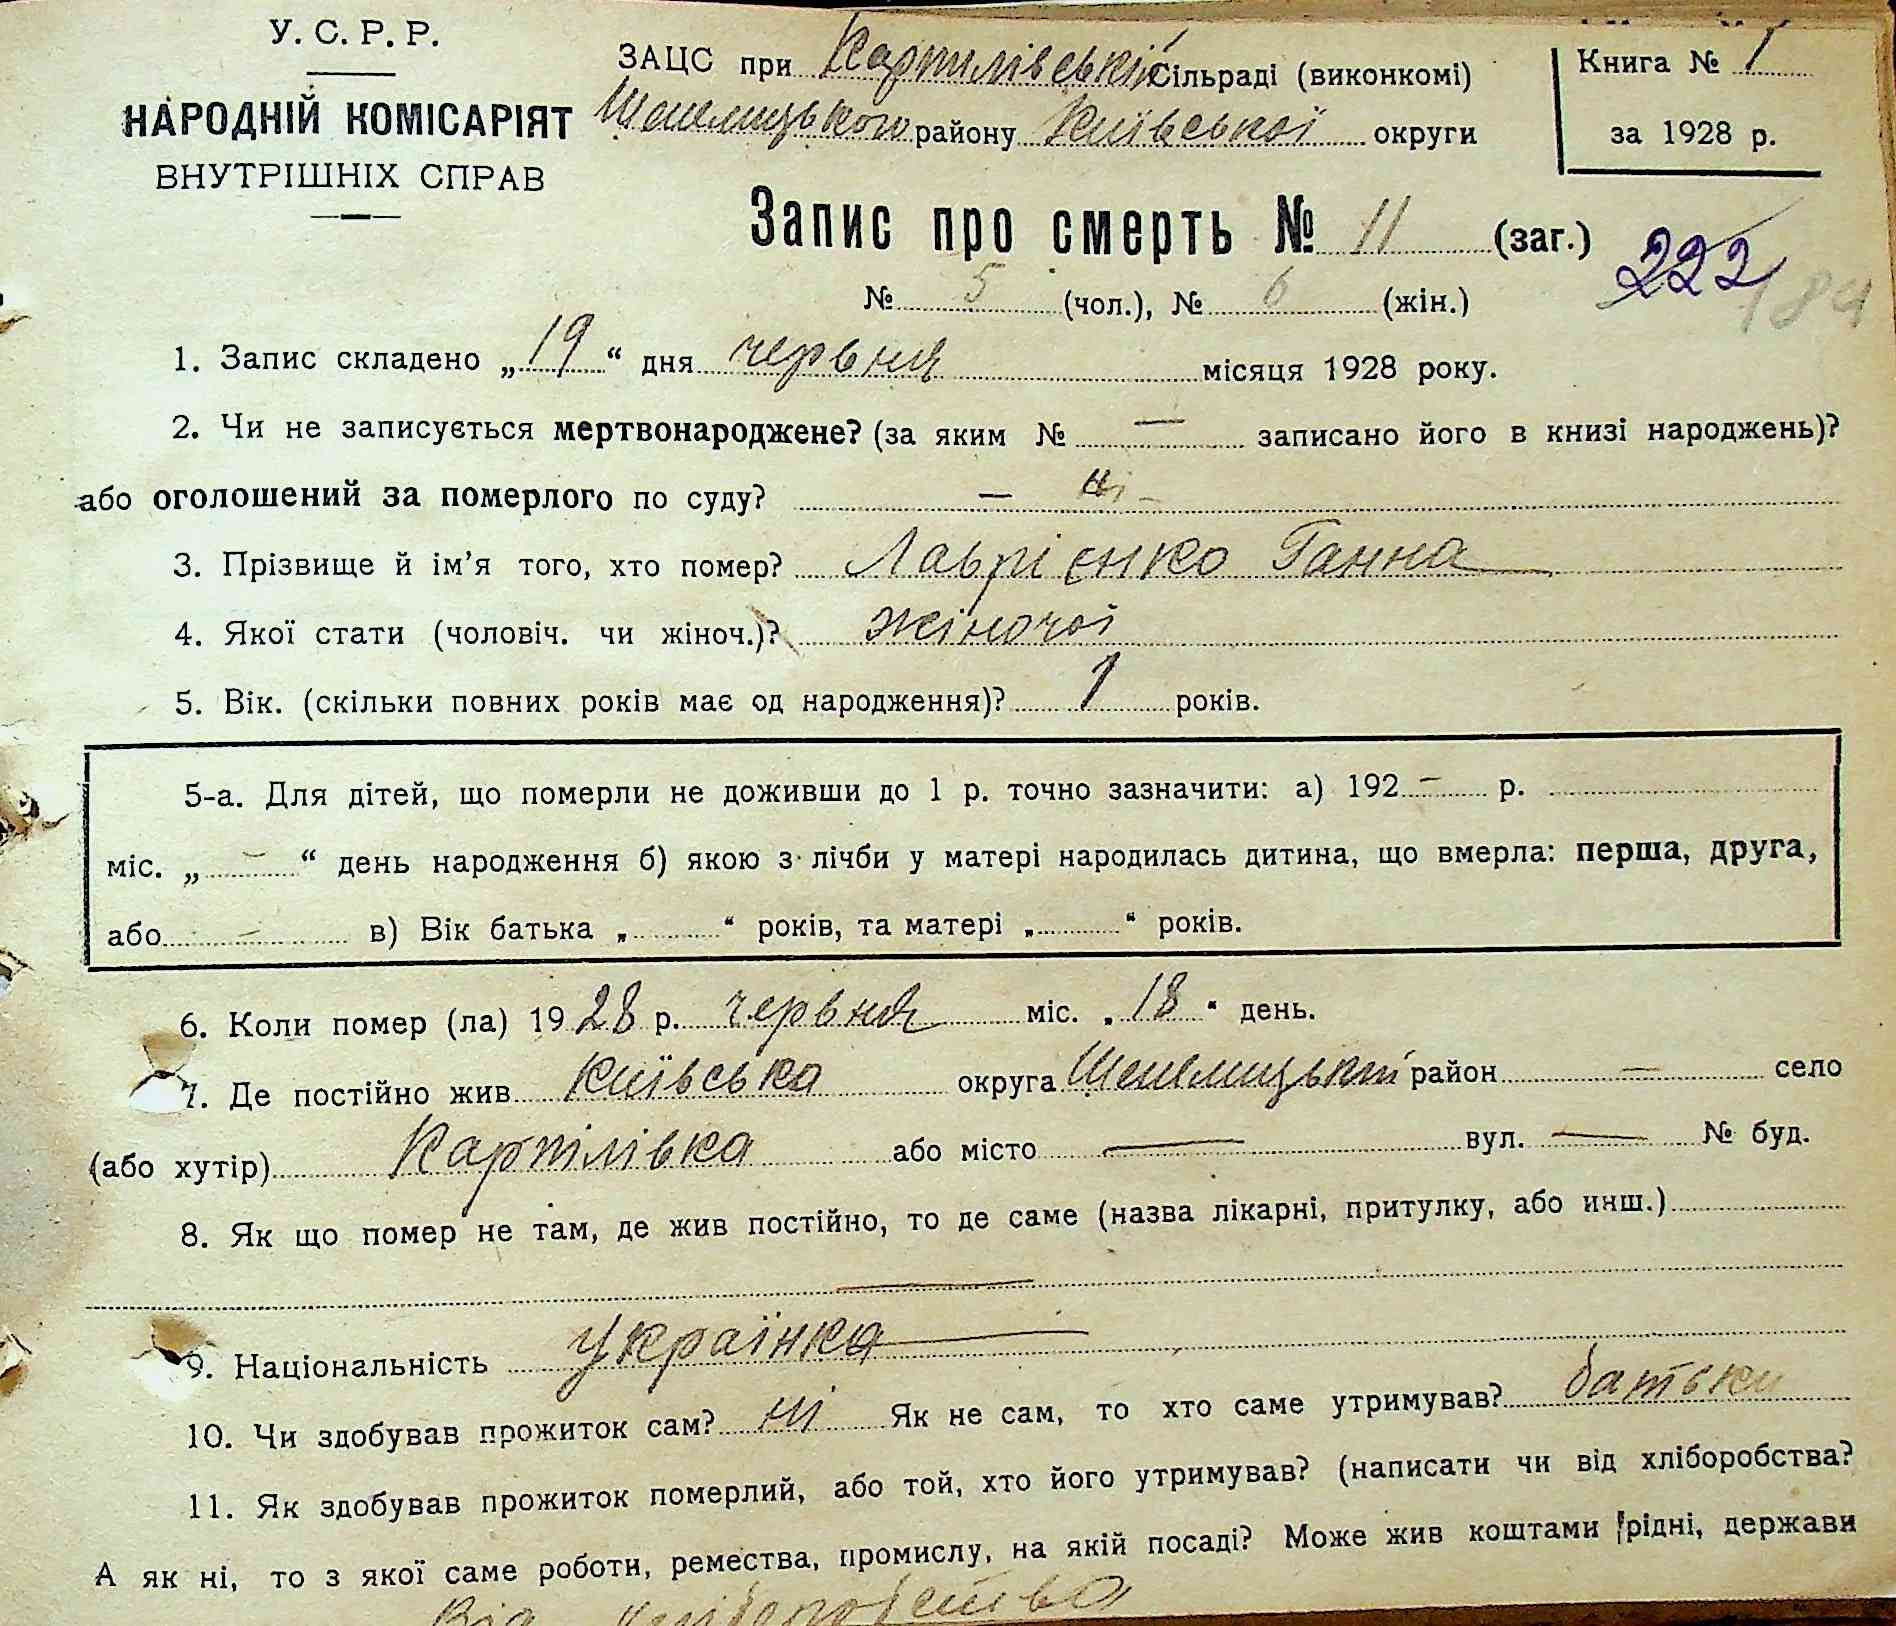 У. С. Р. Р.
НАРОДНІЙ КОМІСАРІЯТ
ВНУТРІШНІХ СПРАВ
ЗАЦС при Карпилівській сільраді (виконкомі)
району Київської округи
Книга № 1
за 1928 р.
Запис про смерть № 11 (заг.)
222
184
№ 5 (чол.), № 6 (жін.)
1. Запис складено „19“ дня червня місяця 1928 року.
2. Чи не записується мертвонароджене? (за яким № — записано його в книзі народжень)?
або оголошений за померлого по суду? — ні —
3. Прізвище й ім’я того, хто помер? Лаврієнко Ганна
4. Якої стати (чоловіч. чи жіноч.)? жіночої
5. Вік. (скільки повних років має од народження)? 1 років.
5-а. Для дітей, що померли не доживши до 1 р. точно зазначити: а) 192 — р.
міс. „ — “ день народження б) якою з лічби у матері народилась дитина, що вмерла: перша, друга,
або — в) Вік батька „ “ років, та матері „ “ років.
6. Коли помер (ла) 1928 р. червня міс. „18“ день.
7. Де постійно жив Київська округа район — село
(або хутір) Карпилівка або місто — вул. — № буд.
8. Як що помер не там, де жив постійно, то де саме (назва лікарні, притулку, або инш.)
—
9. Національність Українка
10. Чи здобував прожиток сам? ні Як не сам, то хто саме утримував? батьки
11. Як здобував прожиток померлий, або той, хто його утримував? (написати чи від хліборобства?
А як ні, то з якої саме роботи, ремества, промислу, на якій посаді? Може жив коштами рідні, держави
Від хліборобства